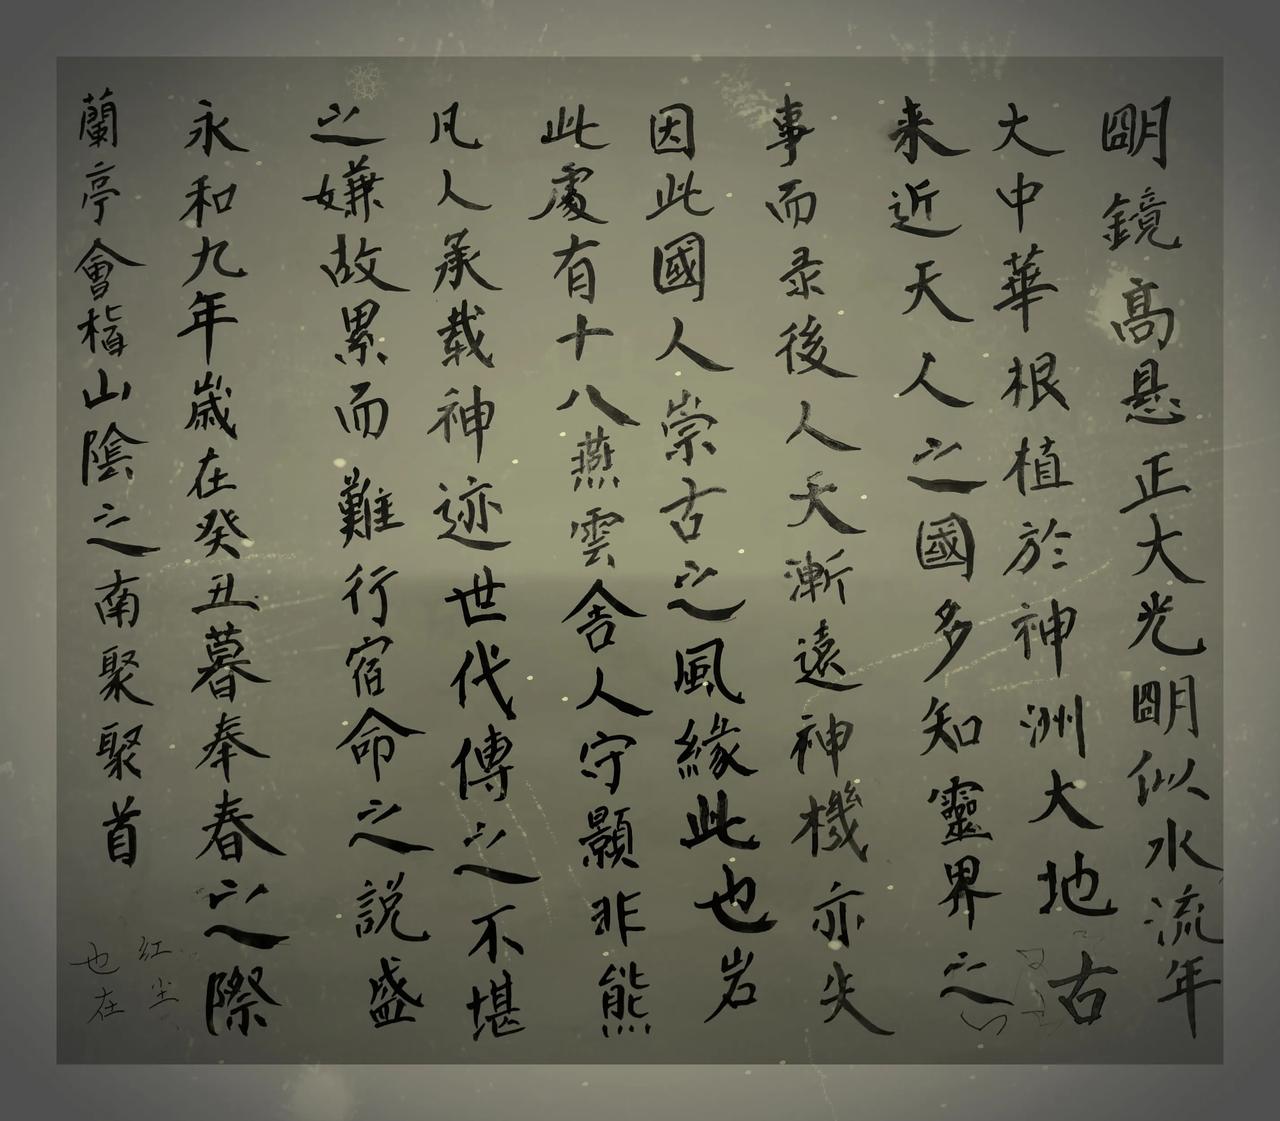 朙鏡高悬正大光朙似水流年
大中華根植於神洲大地古
来近天人之國多知靈界之
事而录後人天漸遠神機亦失
因此國人崇古之風緣此也岩
此處有十八燕雲舍人守顥非熊
凡人承载神迹世代傳之不堪
之嫌故累而難行宿命之説盛
永和九年歲在癸丑暮奉春之際
蘭亭會楷山陰之南聚聚首
红尘
也在